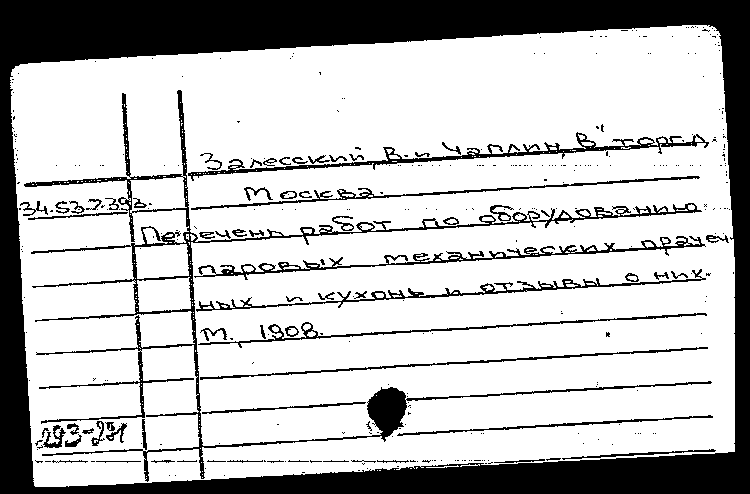 Залесский, В. и Чаплин, В", торг.д.
Москва.
34.53.7.393.
Перечень работ по оборудованию
паровых механических прачеч-
ных и кухонь и отзывы о них.
М., 1908.
293-291